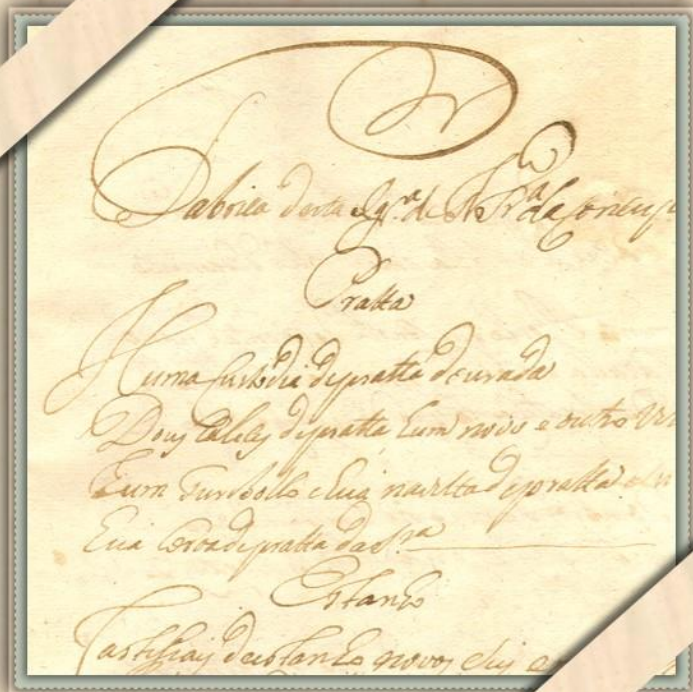 Fabrica desta Igr.ª de N. Sr.ª da Conceip
Pratta
Huma Custodia de pratta dourada
Dous Calices de pratta hum novo e outro
hum Turibollo e hua navetta de pratta
hua Coroa de pratta da Sr.ª
Estanho
Castisais de estanho novos